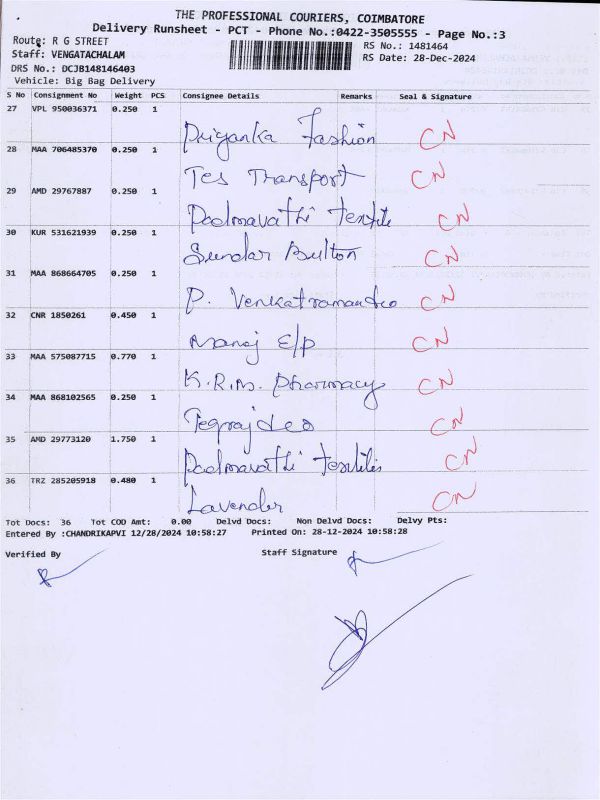 THE PROFESSIONAL COURIERS, COIMBATORE
Delivery Runsheet - PCT - Phone No.:0422-3505555 - Page No.:3
Route: R G STREET
RS No.: 1481464
Staff: VENGATACHALAM
RS Date: 28-Dec-2024
DRS No.: DCJB148146403
Vehicle: Big Bag Delivery
S No Consignment No Weight PCS Consignee Details Remarks Seal & Signature
27 VPL 950036371 0.250 1
Priyanka Fashion CN
28 MAA 706485370 0.250 1
Tes Transport CN
29 AMD 29767887 0.250 1
Padmavathi textile CN
30 KUR 531621939 0.250 1
Sundar Button CN
31 MAA 868664705 0.250 1
P. CN
32 CNR 1850261 0.450 1
Manoj E/p CN
33 MAA 575087715 0.770 1
K.R.M. Pharmacy CN
34 MAA 868102565 0.250 1
CN
35 AMD 29773120 1.750 1
Padmavathi textiles CN
36 TRZ 285205918 0.480 1
Lavender CN
Tot Docs: 36 Tot COD Amt: 0.00 Delvd Docs: Non Delvd Docs: Delvy Pts:
Entered By :CHANDRIKAPVI 12/28/2024 10:58:27 Printed On: 28-12-2024 10:58:28
Verified By Staff Signature